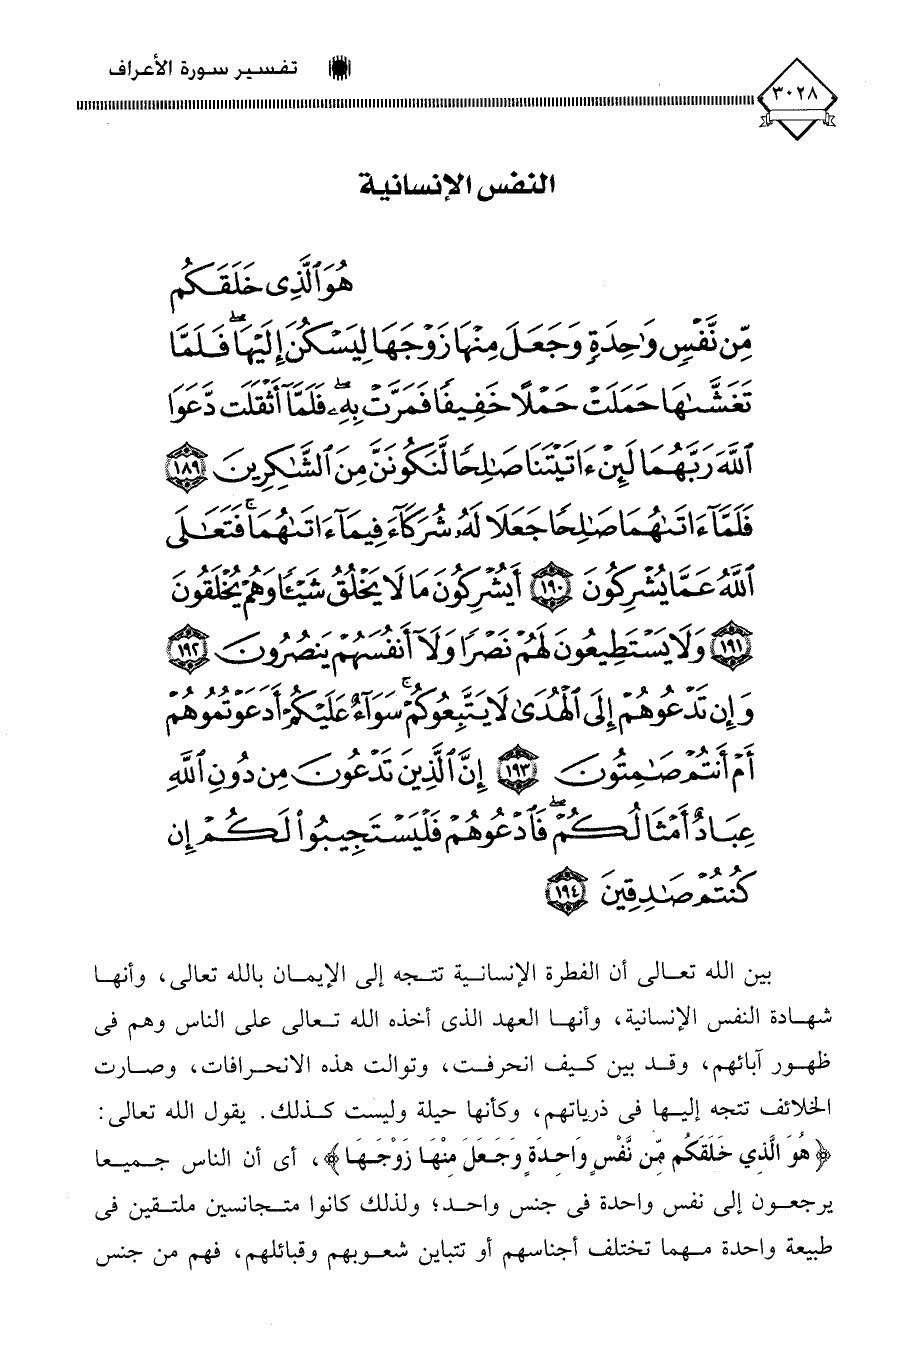 تفسير سورة الأعراف
٣٠٢٨
النفس الإنسانية
هُوَ ٱلَّذِى خَلَقَكُم
مِّن نَّفْسٍ وَٰحِدَةٍ وَجَعَلَ مِنْهَا زَوْجَهَا لِيَسْكُنَ إِلَيْهَا ۖ فَلَمَّا
تَغَشَّىٰهَا حَمَلَتْ حَمْلًا خَفِيفًا فَمَرَّتْ بِهِۦ ۖ فَلَمَّآ أَثْقَلَت دَّعَوَا
ٱللَّهَ رَبَّهُمَا لَئِنْ ءَاتَيْتَنَا صَٰلِحًا لَّنَكُونَنَّ مِنَ ٱلشَّٰكِرِينَ ١٨٩
فَلَمَّآ ءَاتَىٰهُمَا صَٰلِحًا جَعَلَا لَهُۥ شُرَكَآءَ فِيمَآ ءَاتَىٰهُمَا ۚ فَتَعَٰلَى
ٱللَّهُ عَمَّا يُشْرِكُونَ ١٩٠ أَيُشْرِكُونَ مَا لَا يَخْلُقُ شَيْـًٔا وَهُمْ يُخْلَقُونَ
١٩١ وَلَا يَسْتَطِيعُونَ لَهُمْ نَصْرًا وَلَآ أَنفُسَهُمْ يَنصُرُونَ ١٩٢
وَإِن تَدْعُوهُمْ إِلَى ٱلْهُدَىٰ لَا يَتَّبِعُوكُمْ ۚ سَوَآءٌ عَلَيْكُمْ أَدَعَوْتُمُوهُمْ
أَمْ أَنتُمْ صَٰمِتُونَ ١٩٣ إِنَّ ٱلَّذِينَ تَدْعُونَ مِن دُونِ ٱللَّهِ
عِبَادٌ أَمْثَالُكُمْ ۖ فَٱدْعُوهُمْ فَلْيَسْتَجِيبُوا۟ لَكُمْ إِن
كُنتُمْ صَٰدِقِينَ ١٩٤
بين الله تعالى أن الفطرة الإنسانية تتجه إلى الإيمان بالله تعالى، وأنها
شهادة النفس الإنسانية، وأنها العهد الذى أخذه الله تعالى على الناس وهم فى
ظهور آبائهم، وقد بين كيف انحرفت، وتوالت هذه الانحرافات، وصارت
الخلائف تتجه إليها فى ذرياتهم، وكأنها حيلة وليست كذلك. يقول الله تعالى:
﴿هُوَ الَّذِي خَلَقَكُم مِّن نَّفْسٍ وَاحِدَةٍ وَجَعَلَ مِنْهَا زَوْجَهَا﴾، أى أن الناس جميعا
يرجعون إلى نفس واحدة فى جنس واحد؛ ولذلك كانوا متجانسين ملتقين فى
طبيعة واحدة مهما تختلف أجناسهم أو تتباين شعوبهم وقبائلهم، فهم من جنس